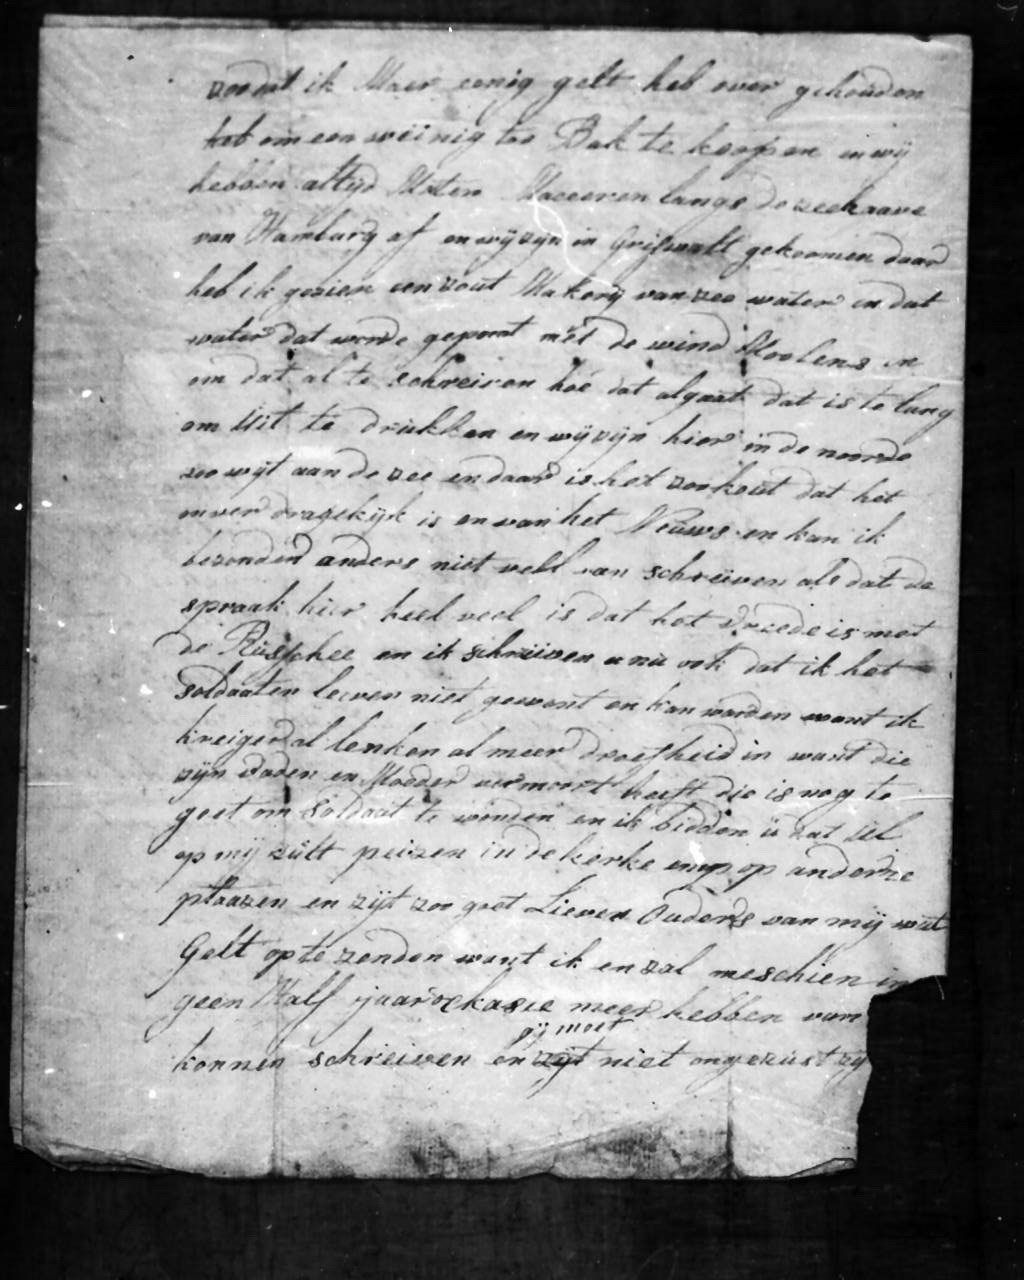 zoodat ik Maer eenig gelt heb over gehouden
heb om een weinig toe Bak te koopen en wij
hebben altyd Moten Maceeren langs de zeehaave
van Hamburg af en wij zijn in Grijswalt gekoomen daar
heb ik gezien een zout Makerij van zee water en dat
water dat worde gepomt mét de wind Moolens en
om dat al te schreiven hoe dat algaat dat is te lang
om Uit te drukken en wij zijn hier in de noorde
zoo wijt aan de zee en daar is het zoo kout dat het
onver dragelijk is en van het Neuws en kan ik
bezonder anders niet veel van schreiven als dat de
spraak hier heel veel is dat het Vreede is met
de Russchee en ik schreiven u nu ook dat ik het
Soldaaten leeven niet gewent en kan worden want ik
kreiger al lenken al meer droefheid in want die
zijn Vader en Moeder vermoort heeft die is nog te
goet om Soldaat te worden en ik bidden u dat UL
op mij zult peizen in de kerke en op anderre
plaazen en zijt zoo goet Lieven Ouders van mij wat
Gelt op te zenden want ik en zal meschien in
geen Half jaar ockasie meer hebben van
konnen schreiven en gij moet niet ongerust zy